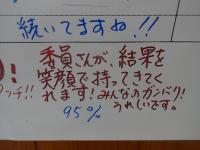 続いてますね!!
委員さんが、結果を
笑顔で持ってきてく
れます!みんなのガンバリ!
うれしいです。
95%